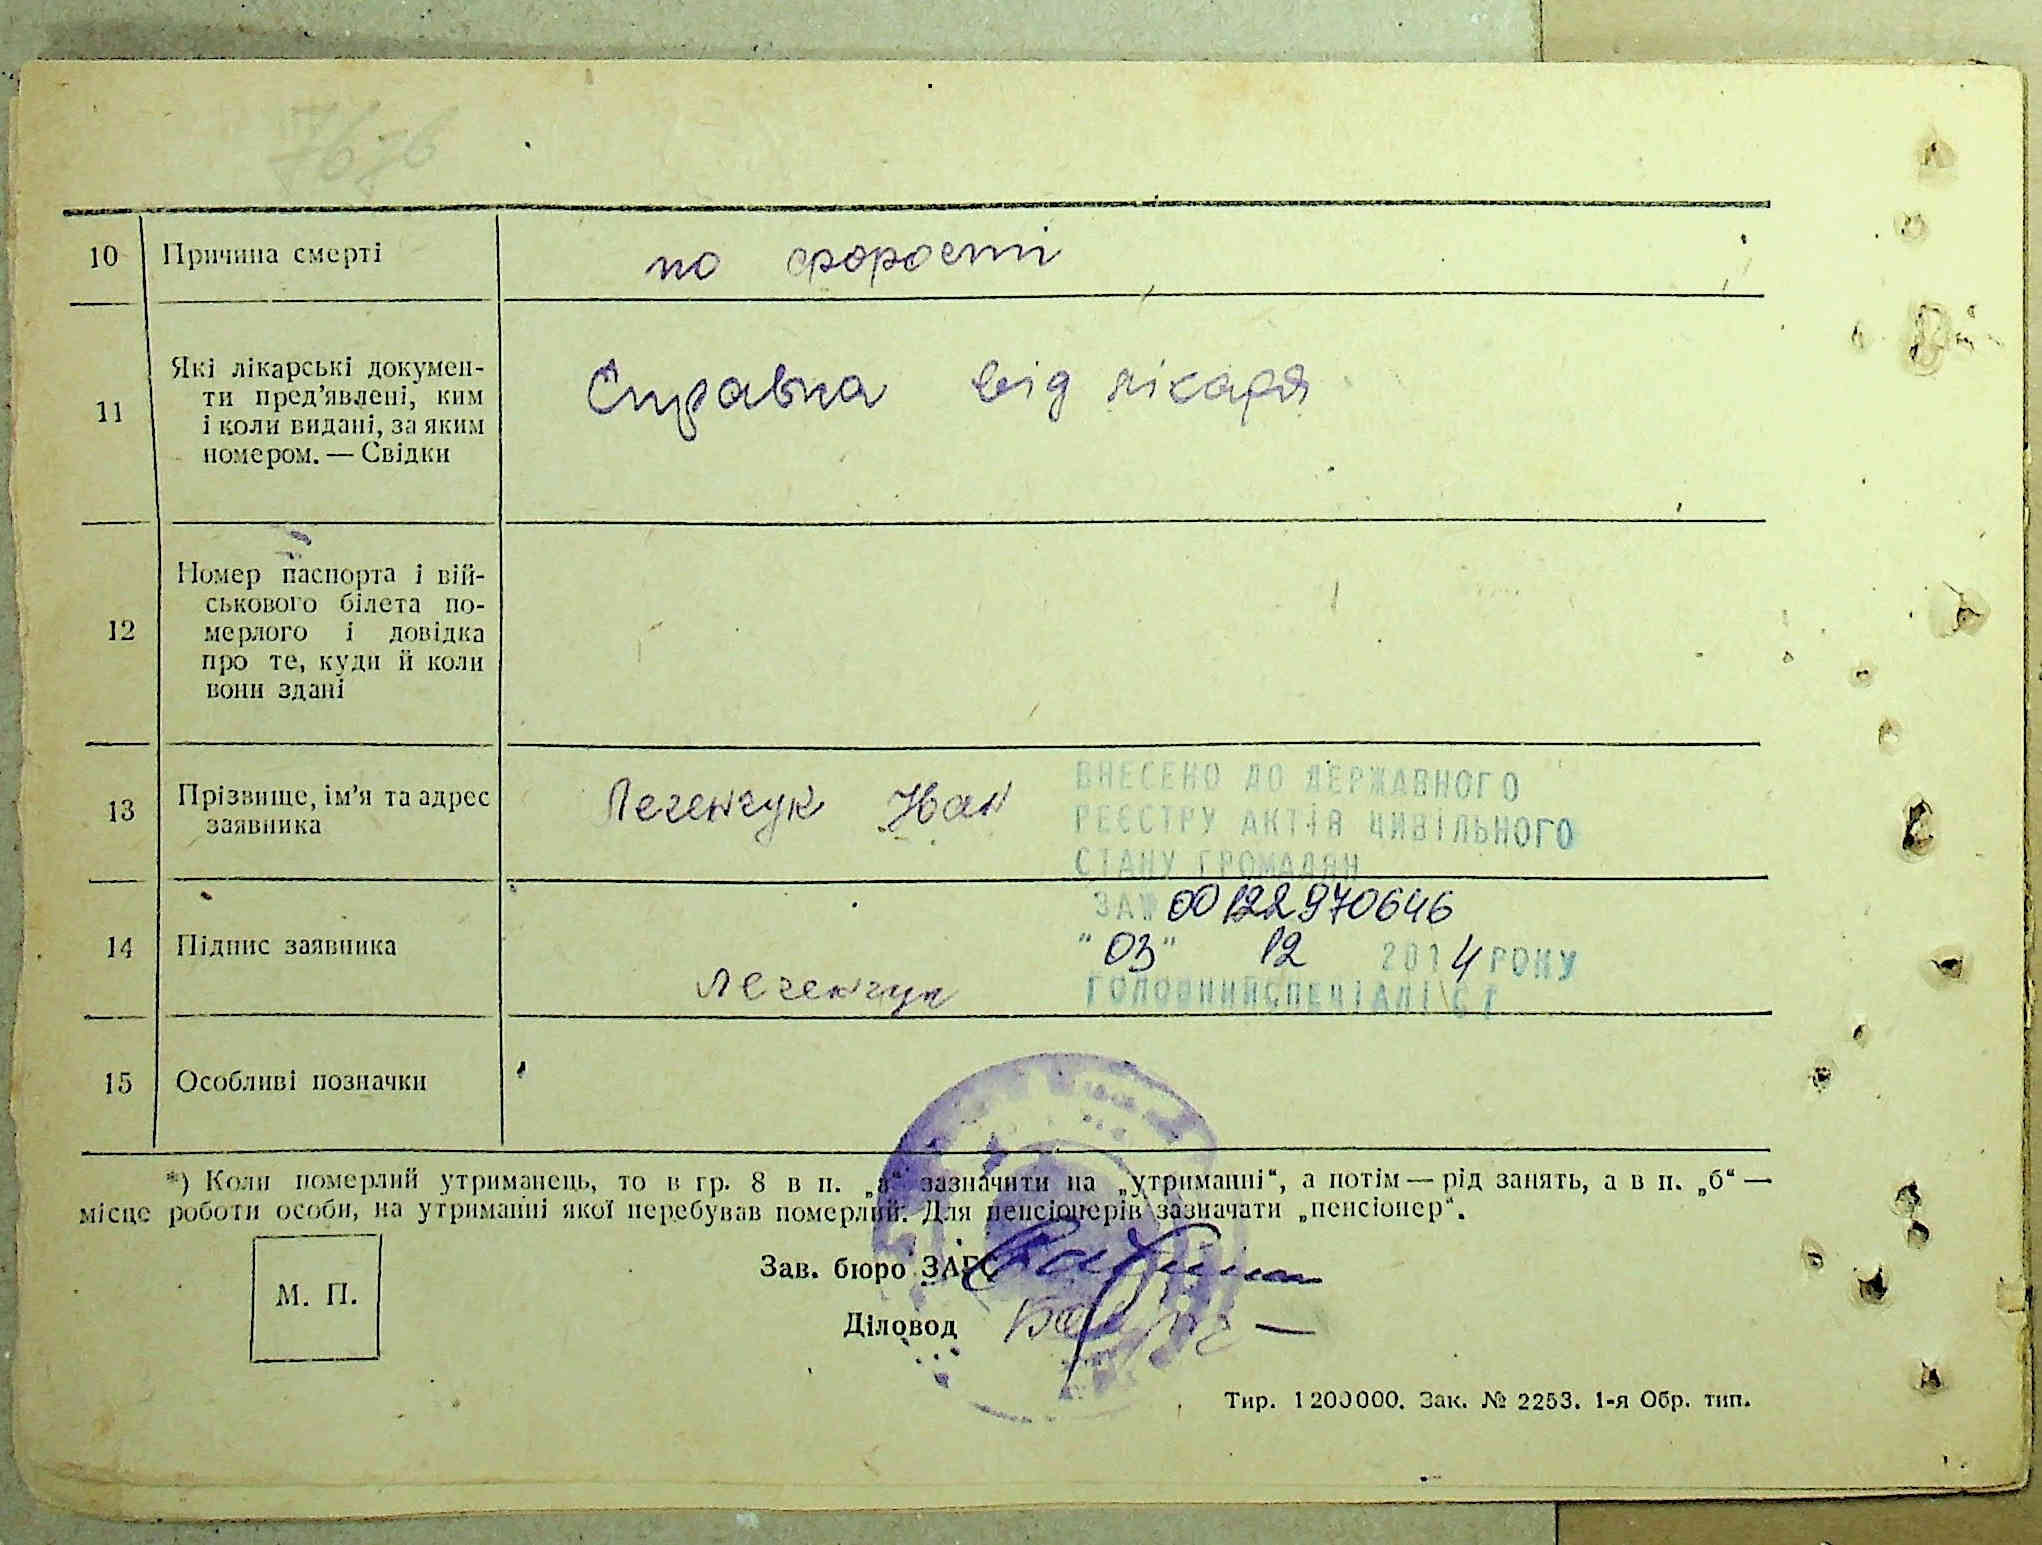 10 Причина смерті по форості
11 Які лікарські докумен-
ти пред'явлені, ким
і коли видані, за яким
номером. — Свідки
Справка від лікаря
12 Номер паспорта і вій-
ськового білета по-
мерлого і довідка
про те, куди й коли
вони здані
13 Прізвище, ім'я та адрес
заявника
Легенчук Іван
ВНЕСЕНО ДО ДЕРЖАВНОГО
РЕЄСТРУ АКТІВ ЦИВІЛЬНОГО
СТАНУ ГРОМАДЯН
ЗА № 00122970646
"03" 12 2014 РОКУ
ГОЛОВНИЙ СПЕЦІАЛІСТ
14 Підпис заявника Легенчук
15 Особливі позначки
*) Коли померлий утриманець, то в гр. 8 в п. „а“ зазначити на „утриманні“, а потім — рід занять, а в п. „б“ —
місце роботи особи, на утриманні якої перебував померлий. Для пенсіонерів зазначати „пенсіонер“.
М. П.
Зав. бюро ЗАГС
Діловод
Тир. 1200000. Зак. № 2253. 1-я Обр. тип.